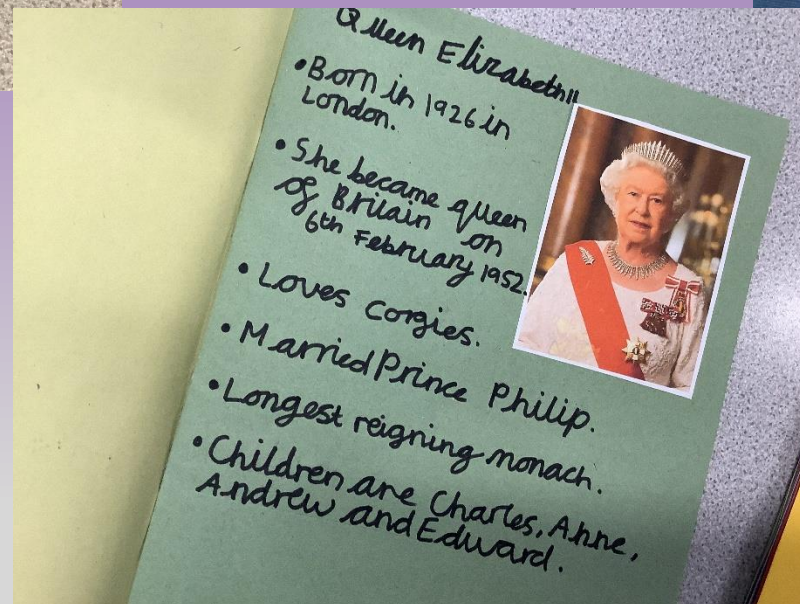 Queen Elizabeth II
•Born in 1926 in
London.
•She became queen
of Britain on
6th February 1952.
•Loves corgies.
•Married Prince Philip.
•Longest reigning monach.
•Children are Charles, Anne,
Andrew and Edward.